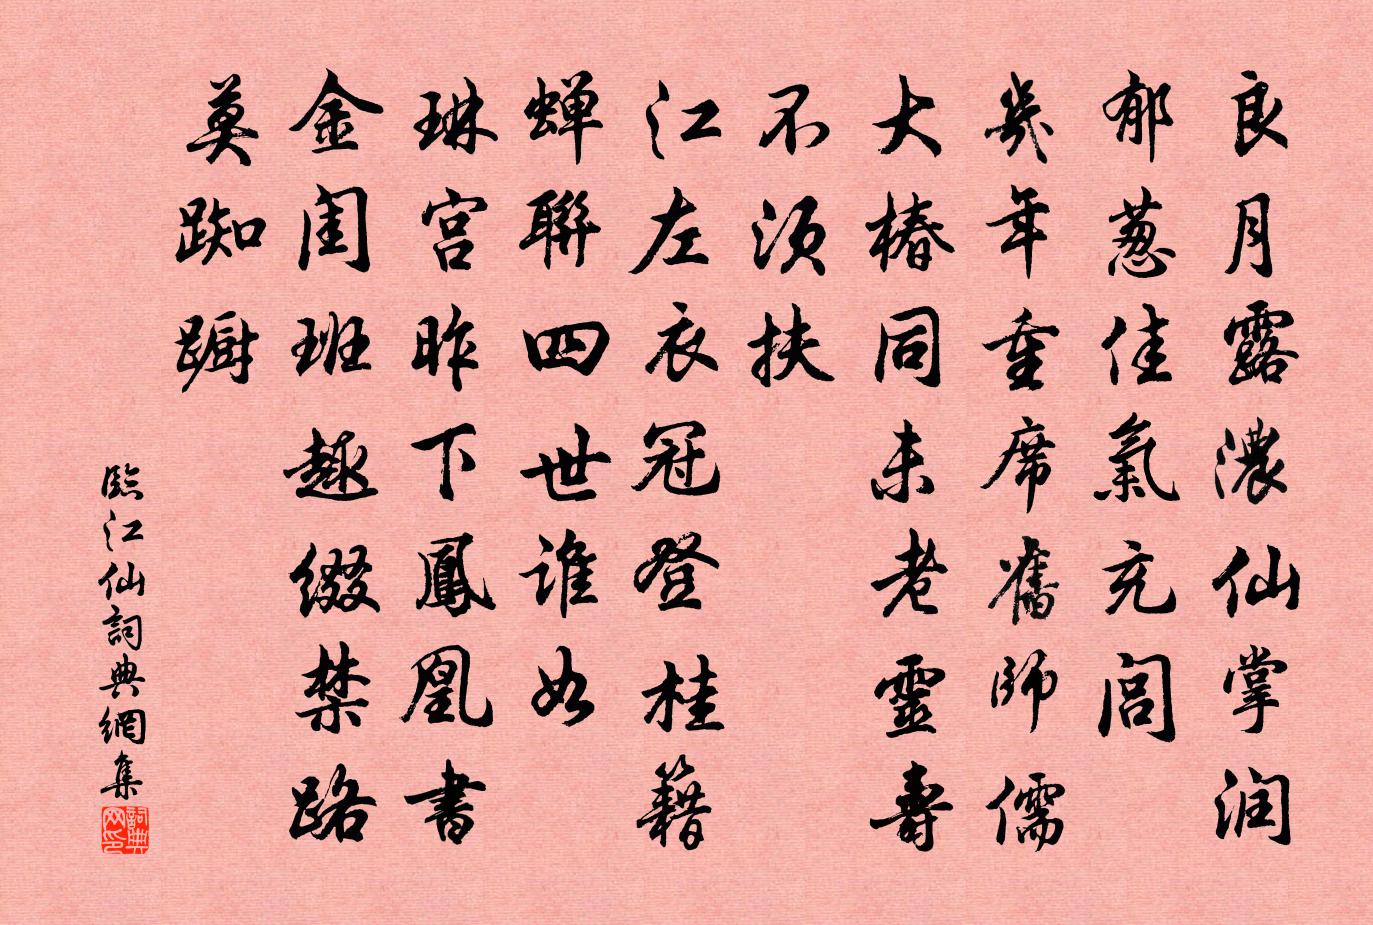 良月露濃仙掌润
郁葱佳氣充閭
幾年重席舊師儒
大椿同未老靈壽
不須扶
江左衣冠登桂籍
蝉聯四世谁如
琳宫昨下鳳凰書
金闺班趣缀禁路
莫踟蹰
臨江仙詞典網集
詞典网印